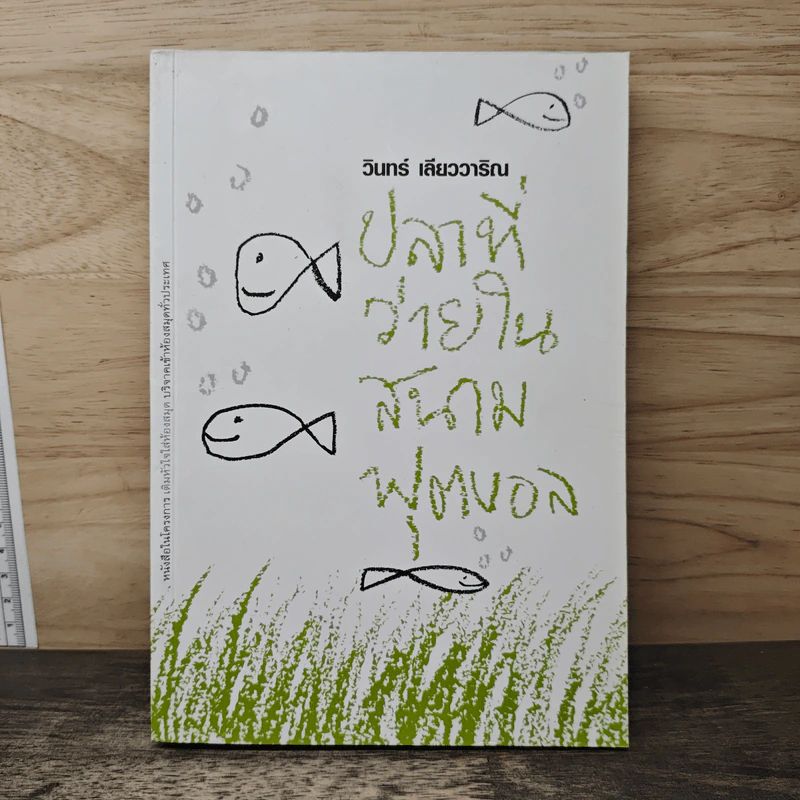 วินทร์ เลียววาริณ
ปลาที่
ว่ายใน
สนาม
ฟุตบอล
หนังสือในโครงการ เติมหัวใจใส่ห้องสมุด บริจาคเข้าห้องสมุดทั่วประเทศ